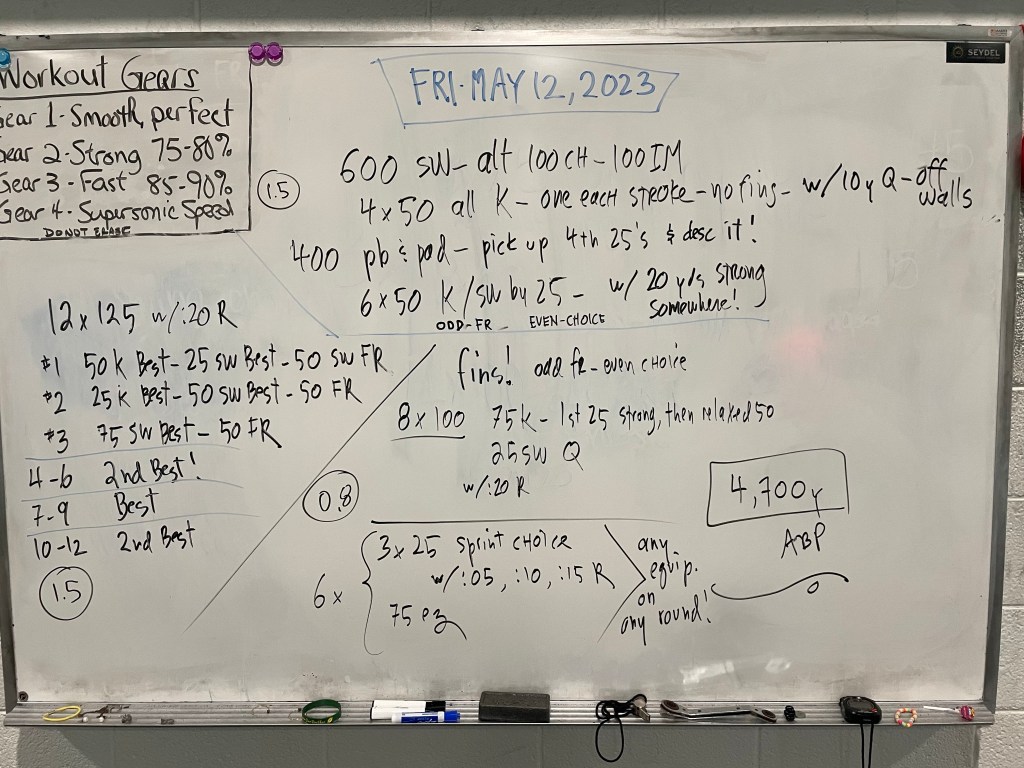 Workout Gears
Gear 1 - Smooth, perfect
Gear 2 - Strong 75-80%
Gear 3 - Fast 85-90%
Gear 4 - Supersonic Speed
DO NOT ERASE
SEYDEL
FRI. MAY 12, 2023
600 SW - alt 100 CH - 100 IM
1.5
4 x 50 all K - one each STROKE - no fins - w/10y Q - off walls
400 pb & pad - pick up 4th 25's & desc it!
6 x 50 K/SW by 25 - w/ 20 yds strong somewhere!
ODD-FR EVEN-CHOICE
12 x 125 w/:20 R
#1 50 K Best - 25 SW Best - 50 SW FR
#2 25 K Best - 50 SW Best - 50 FR
#3 75 SW Best - 50 FR
4-6 2nd Best!
7-9 Best
10-12 2nd Best
1.5
fins! odd fr - even CHOICE
8 x 100 75 K - 1st 25 strong, then relaxed 50
25 SW Q
w/:20 R
0.8
6 x
3 x 25 sprint CHOICE
w/:05, :10, :15 R
75 ez
any equip. on any round!
4,700y
ABP